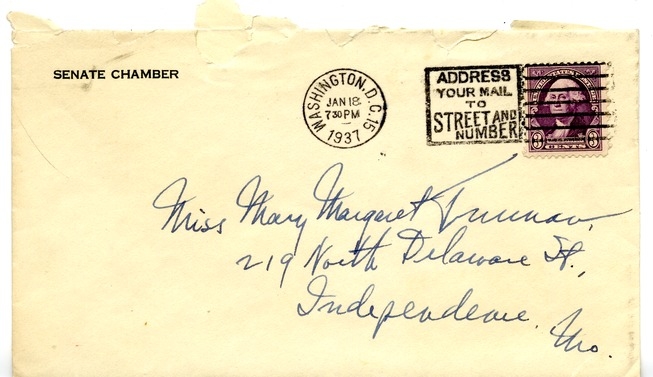 SENATE CHAMBER
WASHINGTON, D.C. 15
JAN 18
730 PM
1937
ADDRESS
YOUR MAIL
TO
STREET AND
NUMBER
3 3
Miss Mary Margaret Truman,
219 North Delaware St.,
Independence, Mo.